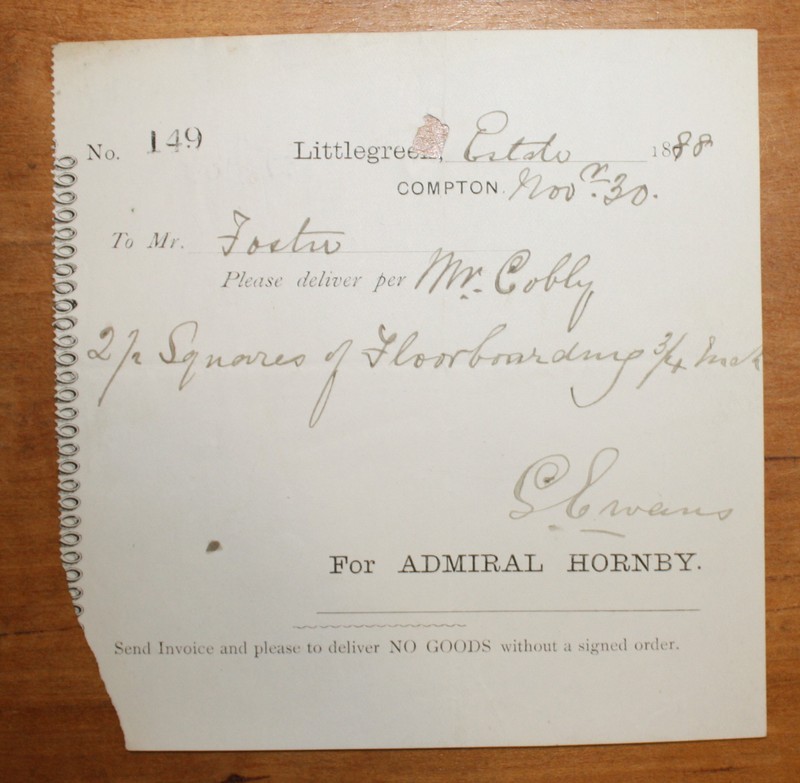 No. 149 Littlegreen, Estate 1888
COMPTON. Novr. 30.
To Mr. Foster
Please deliver per Mr. Cobby
2/2 Squares of Floorboarding 3/4 Inch
G. Evans
For ADMIRAL HORNBY.
Send Invoice and please to deliver NO GOODS without a signed order.